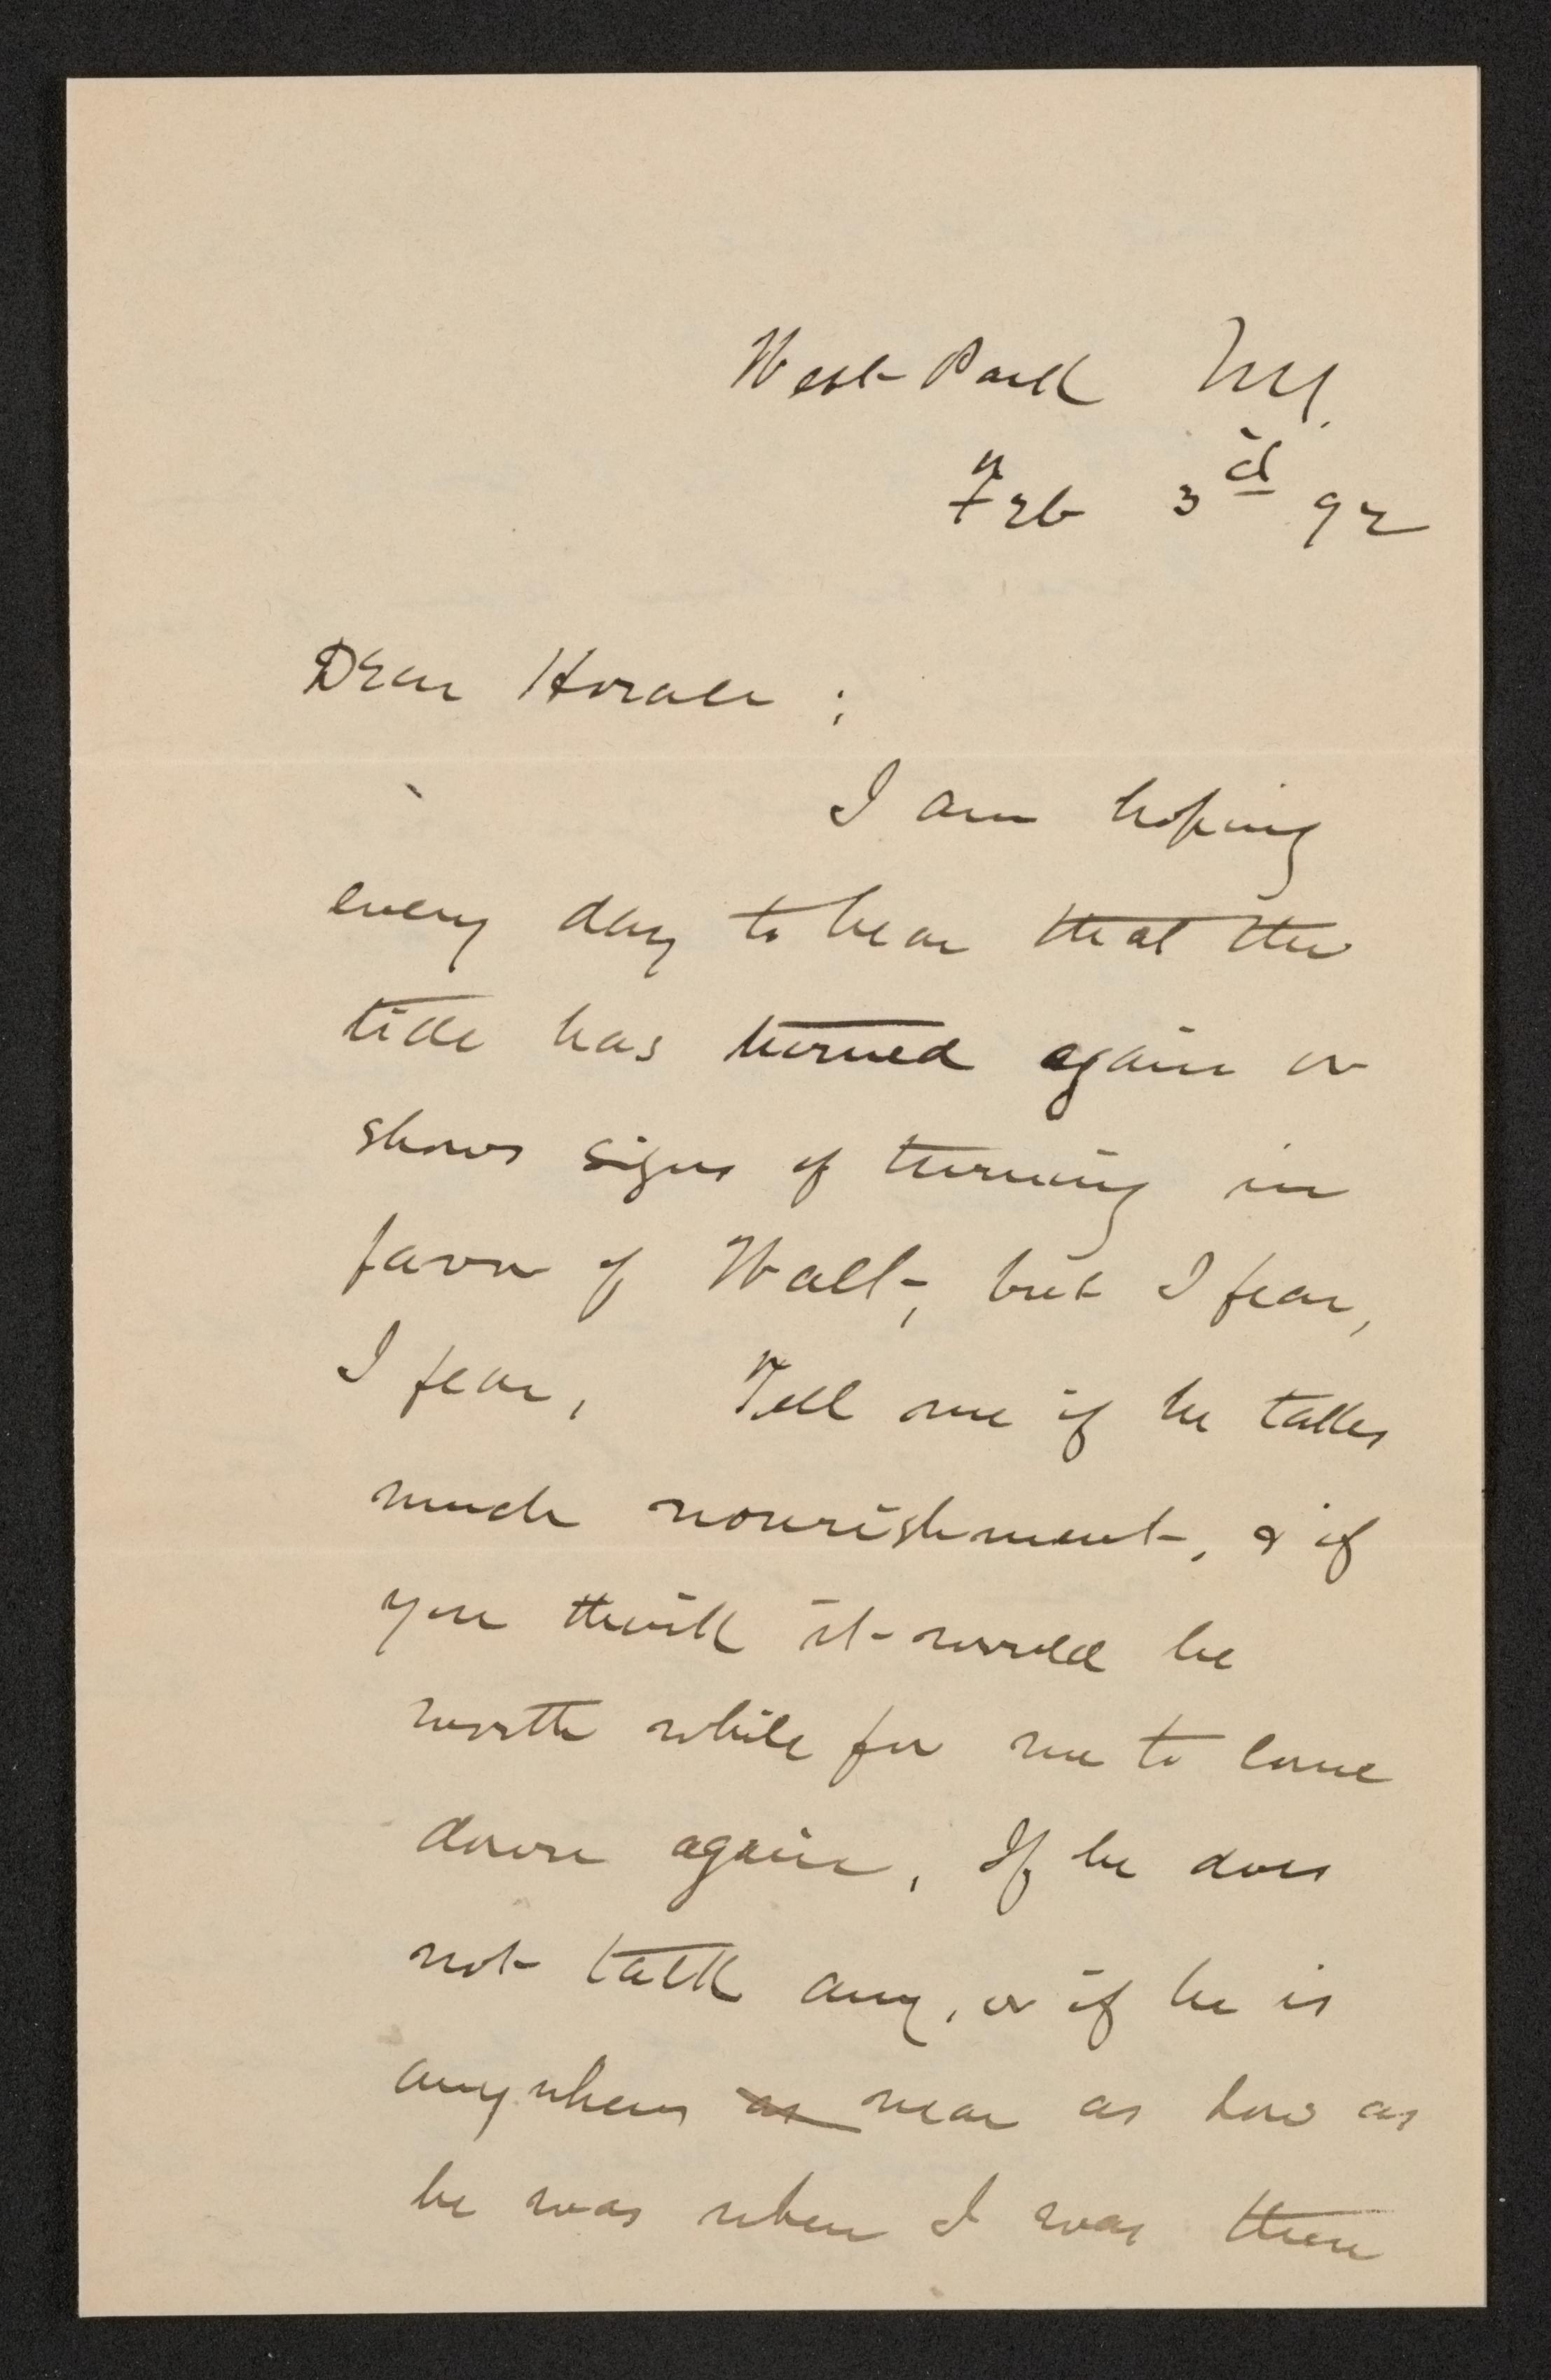 West Park NY.
Feb 3d 92
Dear Horace ;
I am hoping
every day to hear that the
tide has turned again or
shows signs of turning in
favor of Walt, but I fear,
I fear, Tell me if he takes
much nourishment, & if
you think it would be
worth while for me to come
down again. If he does
not talk any, or if he is
anywhere as near as low as
he was when I was there